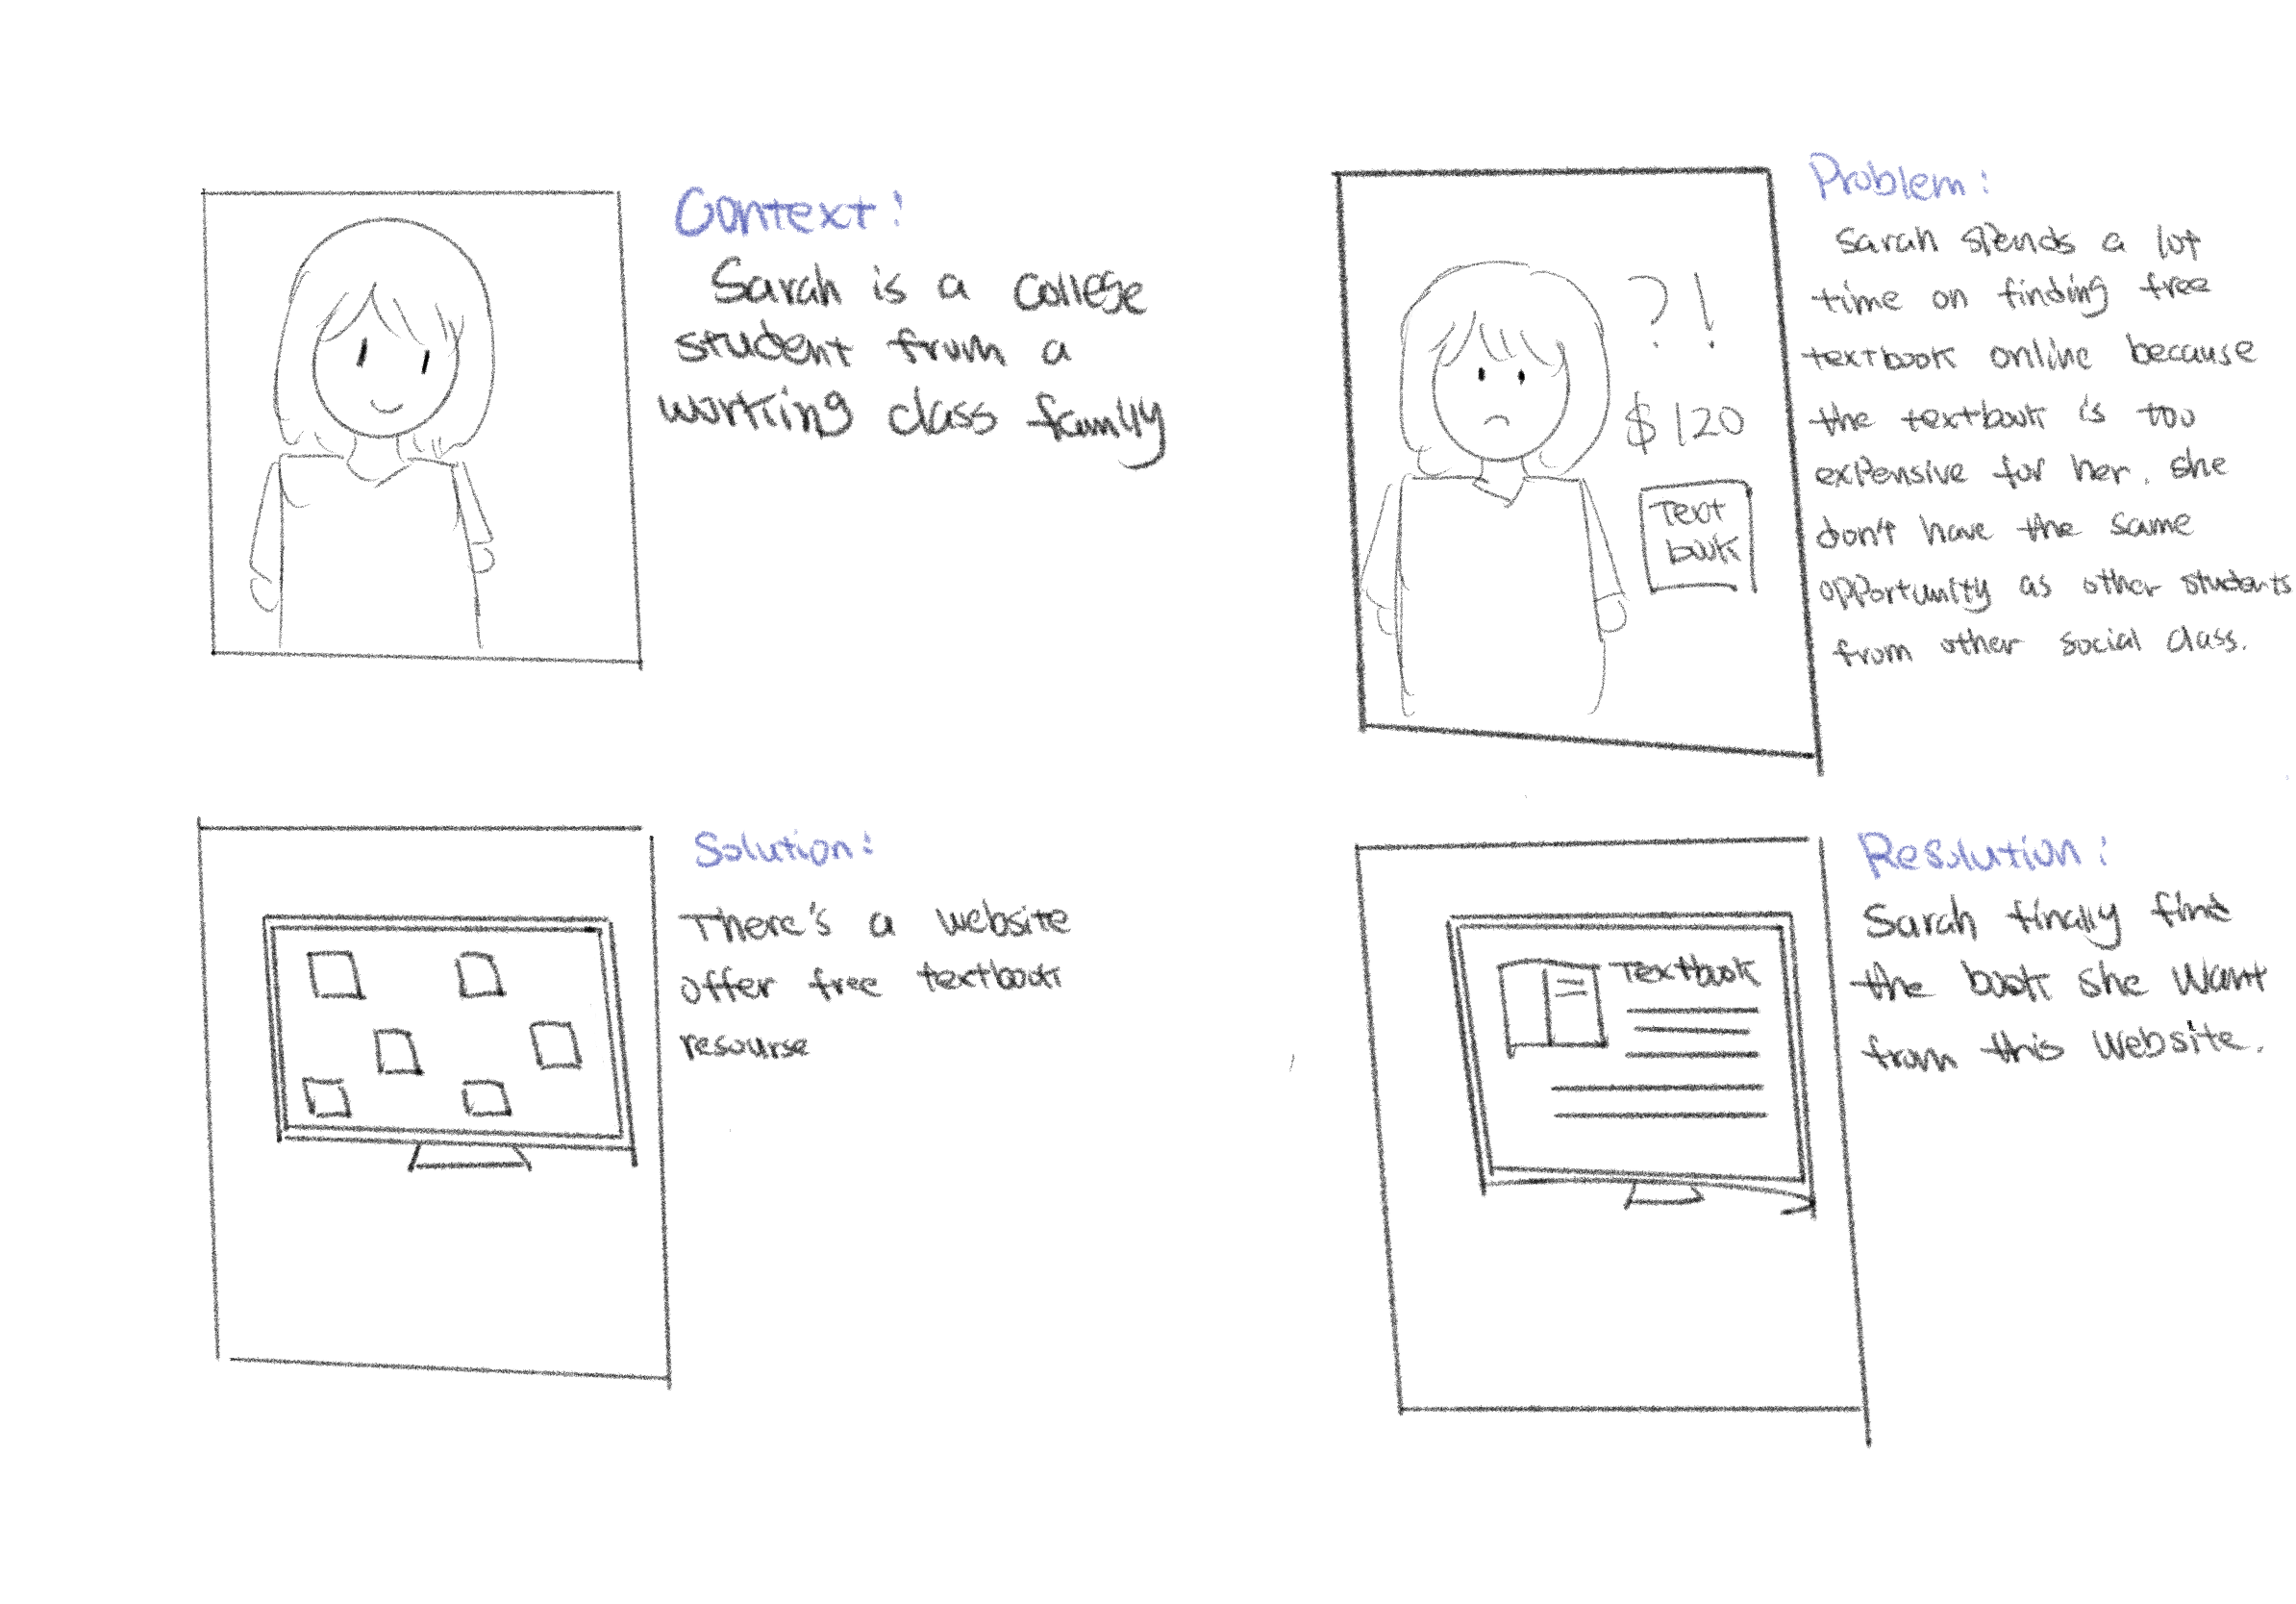 Context:
Sarah is a college
student from a
working class family
Problem:
Sarah spends a lot
time on finding free
textbook online because
the textbook is too
expensive for her. she
don't have the same
opportunity as other students
from other social class.
?!
$120
Text
book
Solution:
There's a website
offer free textbook
resourse
Resolution:
Sarah finally find
the book she want
from this website.
Textbook